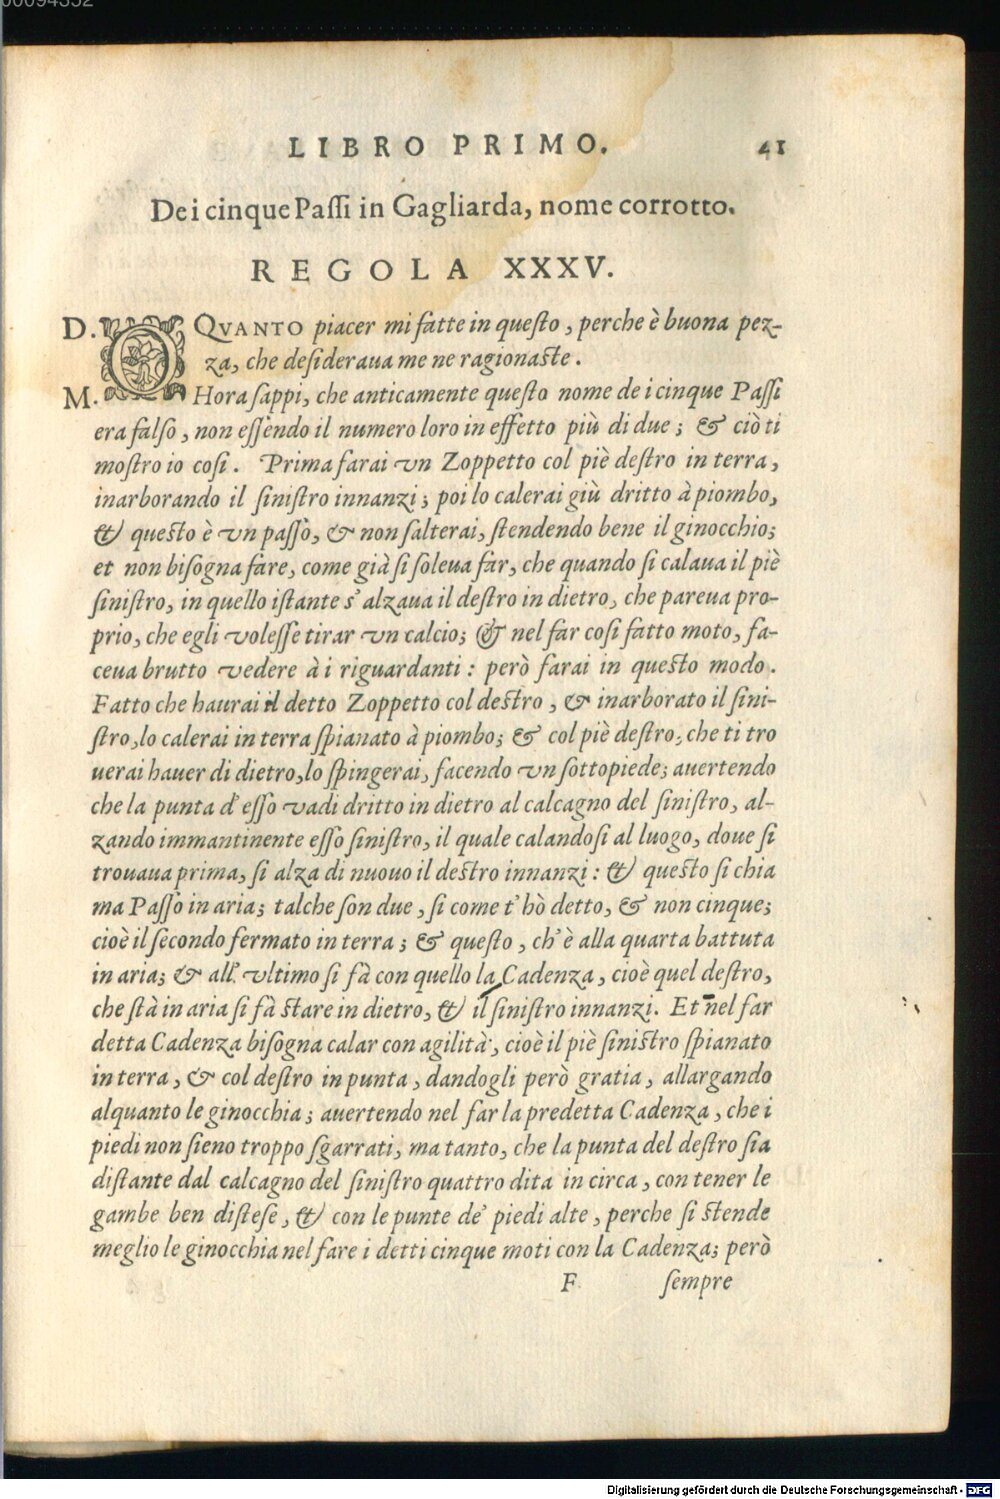 00094352
LIBRO PRIMO. 41
De i cinque Passi in Gagliarda, nome corrotto.
REGOLA XXXV.
D. O QVANTO piacer mi fatte in questo, perche è buona pez-
za, che desideraua me ne ragionaste.
M. Hora sappi, che anticamente questo nome de i cinque Passi
era falso, non essendo il numero loro in effetto più di due; & ciò ti
mostro io cosi. Prima farai vn Zoppetto col piè destro in terra,
inarborando il sinistro innanzi; poi lo calerai giù dritto à piombo,
& questo è vn passò, & non salterai, stendendo bene il ginocchio;
et non bisogna fare, come già si soleua far, che quando si calaua il piè
sinistro, in quello istante s'alzaua il destro in dietro, che pareua pro-
prio, che egli volesse tirar vn calcio; & nel far cosi fatto moto, fa-
ceua brutto vedere à i riguardanti: però farai in questo modo.
Fatto che haurai il detto Zoppetto col destro, & inarborato il sini-
stro, lo calerai in terra spianato à piombo; & col piè destro, che ti tro
uerai hauer di dietro, lo spingerai, facendo vn sottopiede; auertendo
che la punta d'esso vadi dritto in dietro al calcagno del sinistro, al-
zando immantinente esso sinistro, il quale calandosi al luogo, doue si
trouaua prima, si alza di nuouo il destro innanzi: & questo si chia
ma Passo in aria; talche son due, si come t'hò detto, & non cinque;
cioè il secondo fermato in terra; & questo, ch'è alla quarta battuta
in aria; & all'vltimo si fà con quello la Cadenza, cioè quel destro,
che stà in aria si fà stare in dietro, & il sinistro innanzi. Et nel far
detta Cadenza bisogna calar con agilità, cioè il piè sinistro spianato
in terra, & col destro in punta, dandogli però gratia, allargando
alquanto le ginocchia; auertendo nel far la predetta Cadenza, che i
piedi non sieno troppo sgarrati, ma tanto, che la punta del destro sia
distante dal calcagno del sinistro quattro dita in circa, con tener le
gambe ben distese, & con le punte de' piedi alte, perche si stende
meglio le ginocchia nel fare i detti cinque moti con la Cadenza; però
F sempre
Digitalisierung gefördert durch die Deutsche Forschungsgemeinschaft - DFG